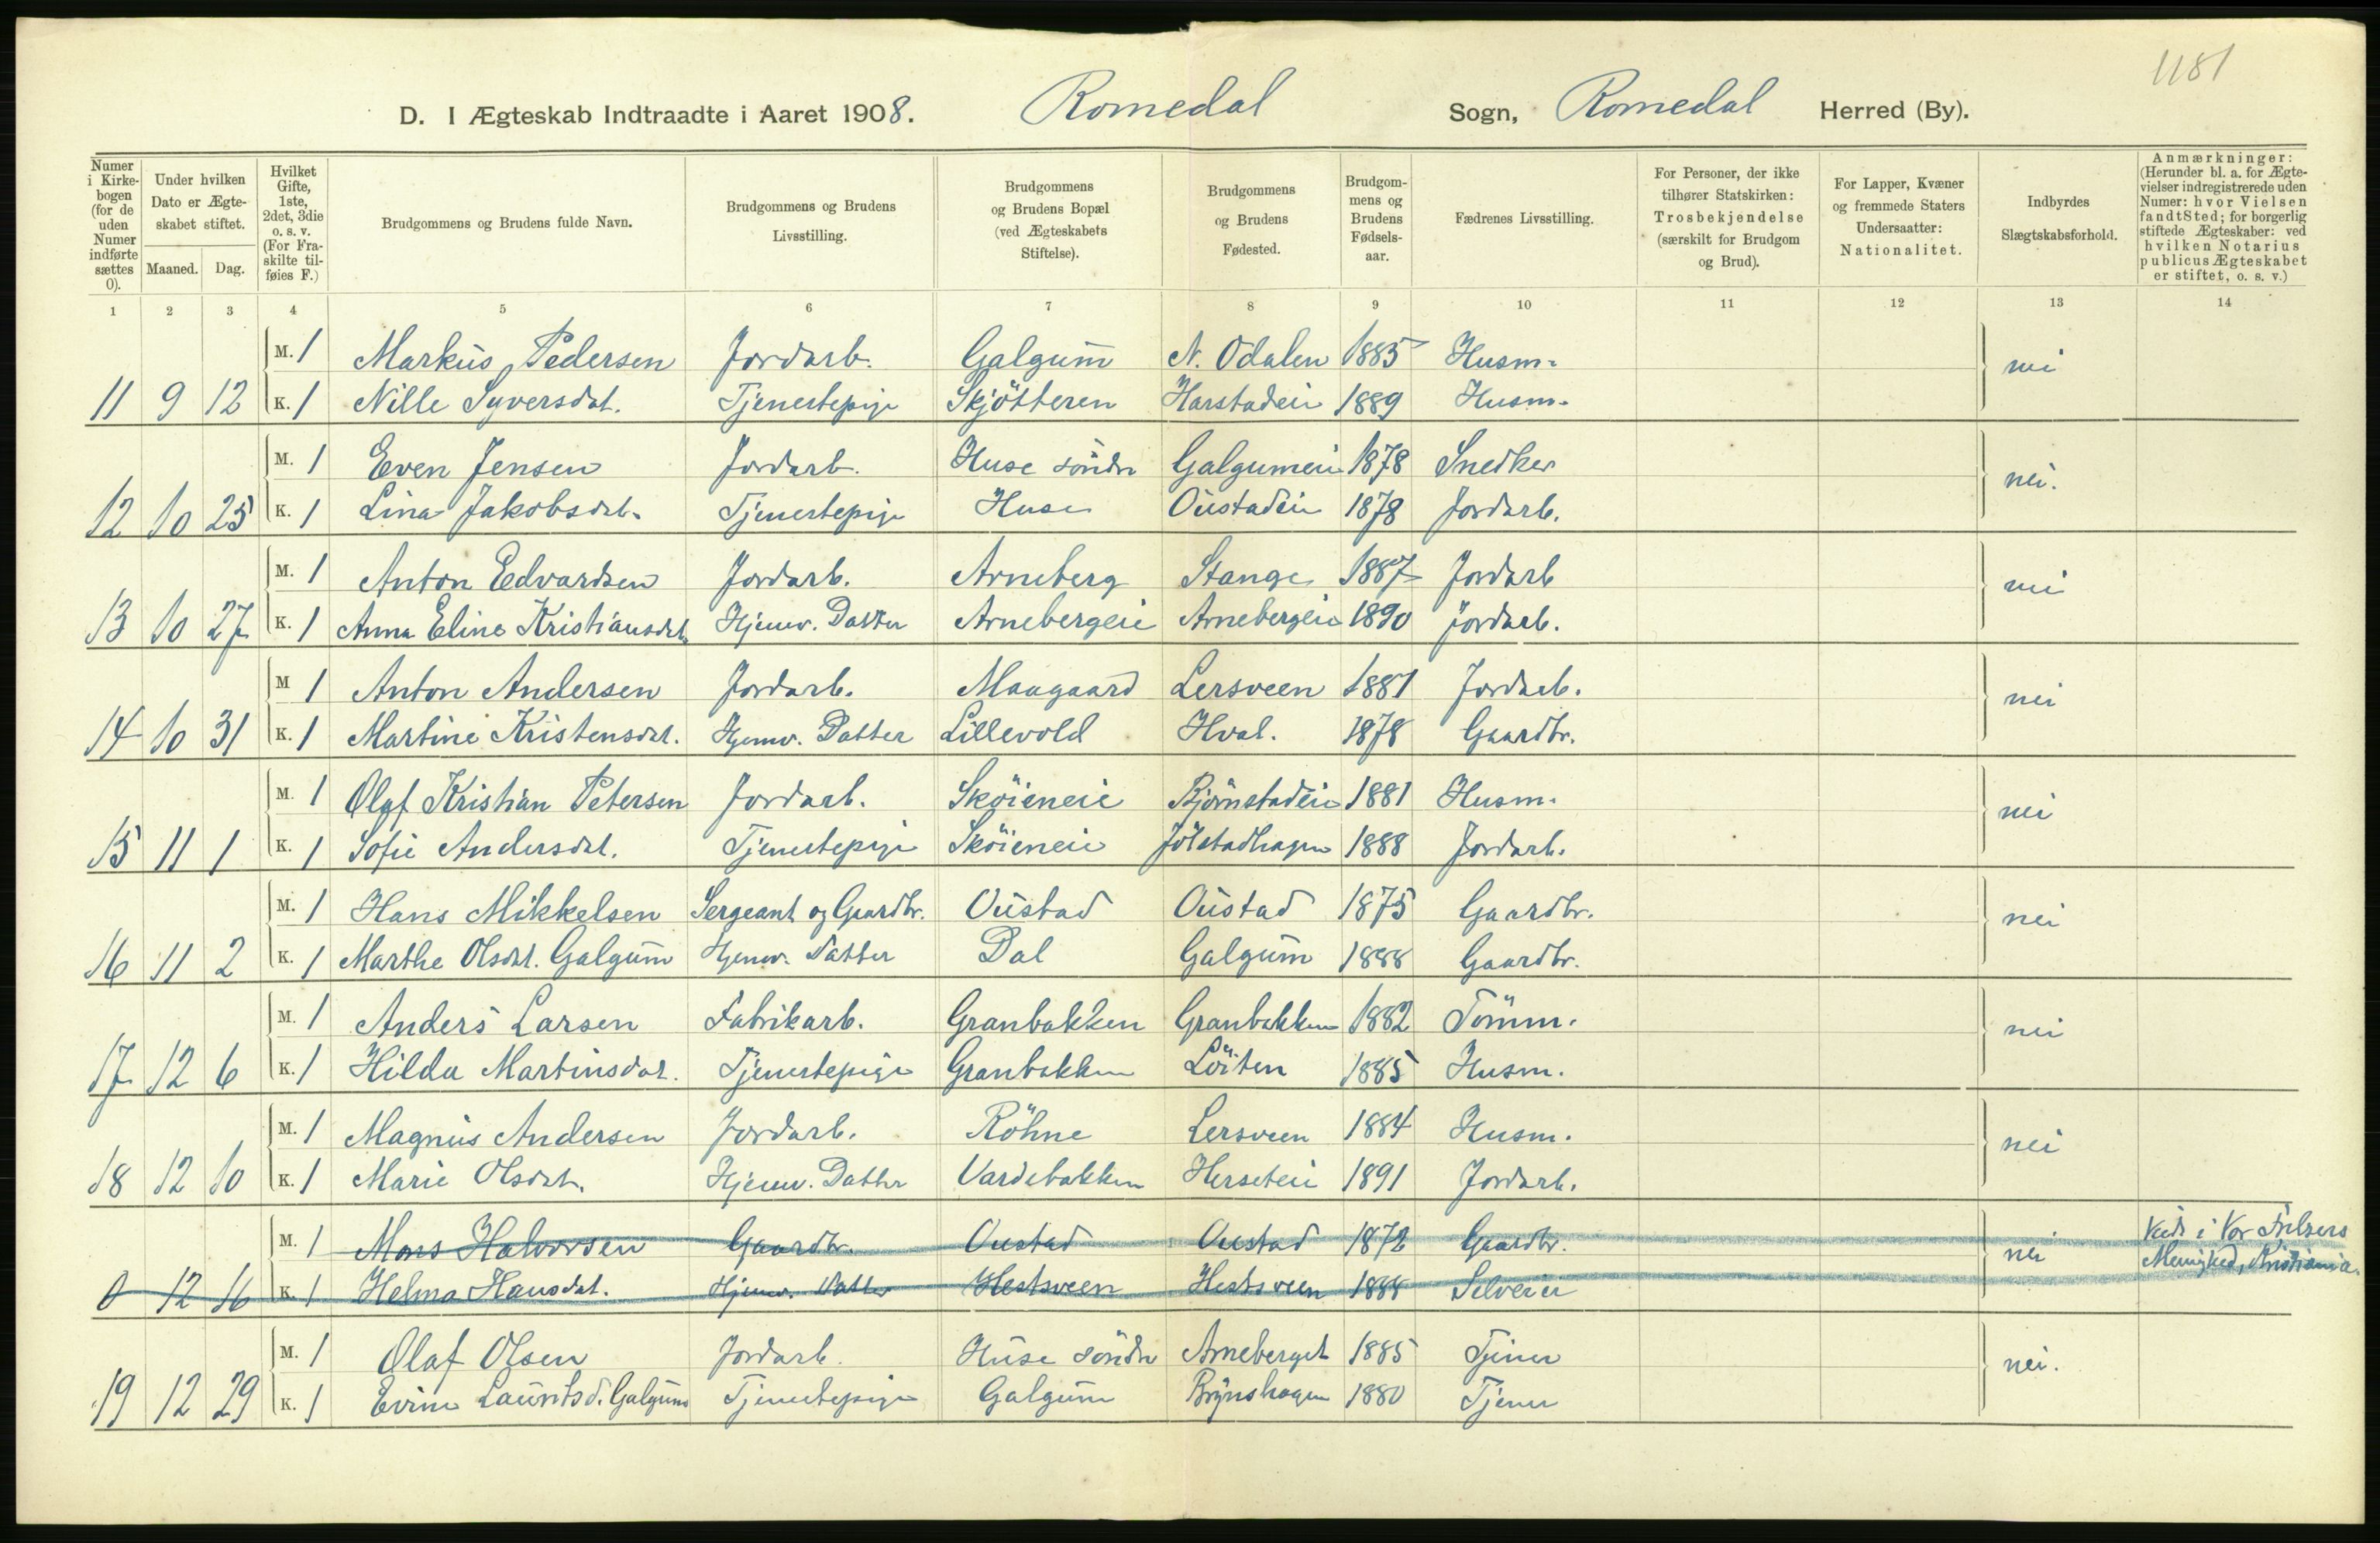 1181
D. I Ægteskab Indtraadte i Aaret 1908. Romedal Sogn, Romedal Herred (By).
Numer i Kirkebogen (for de uden Numer indførte sættes 0).
Under hvilken Dato er Ægteskabet stiftet.
Maaned. Dag.
Hvilket Gifte, 1ste, 2det, 3die o. s. v. (For Fraskilte tilføies F.)
Brudgommens og Brudens fulde Navn.
Brudgommens og Brudens Livsstilling.
Brudgommens og Brudens Bopæl (ved Ægteskabets Stiftelse).
Brudgommens og Brudens Fødested.
Brudgommens og Brudens Fødselsaar.
Fædrenes Livsstilling.
For Personer, der ikke tilhører Statskirken: Trosbekjendelse (særskilt for Brudgom og Brud).
For Lapper, Kvæner og fremmede Staters Undersaatter: Nationalitet.
Indbyrdes Slægtskabsforhold.
Anmærkninger: (Herunder bl. a. for Ægtevielser indregistrerede uden Numer: hvor Vielsen fandt Sted; for borgerlig stiftede Ægteskaber: ved hvilken Notarius publicus Ægteskabet er stiftet, o. s. v.)
1 2 3 4 5 6 7 8 9 10 11 12 13 14
M. 1 Markus Pedersen Jordarb. Galgum N. Odalen 1885 Husm. nei
11 9 12 K. 1 Nille Syversdat. Tjenestepige Skjötteren Harstadeie 1889 Husm.
M. 1 Even Jensen Jordarb. Huse söndre Galgumeie 1878 Snedker nei.
12 10 25 K. 1 Lina Jakobsdat. Tjenestepige Huse Oustadeie 1878 Jordarb.
M. 1 Anton Edvardsen Jordarb. Arneberg Stange 1887 Jordarb nei
13 10 27 K. 1 Anna Eline Kristiansdat. Hjemv. Datter Arnebergeie Arnebergeie 1890 Jordarb.
M 1 Anton Andersen Jordarb. Maagaard Lersveen 1881 Jordarb. nei
14 10 31 K. 1 Martine Kristensdat. Hjemv. Datter Lillevold Hval. 1878 Gaardbr.
M. 1 Olaf Kristian Petersen Jordarb. Sköieneie Björnstadeie 1881 Husm. nei
15 11 1 K. 1 Sofie Andersdat. Tjenestepige Sköieneie Jölstadhagen 1888 Jordarb.
M. 1 Hans Mikkelsen Sergeant og Gaardbr. Oustad Oustad 1875 Gaardbr. nei
16 11 2 K. 1 Marthe Olsdat. Galgum Hjemv. Datter Dal Galgum 1888 Gaardbr.
M. 1 Anders Larsen Fabrikarb. Granbakken Granbakken 1882 Tömm. nei
17 12 6 K. 1 Hilda Martinsdat. Tjenestepige Granbakken Löiten 1885 Husm.
M. 1 Magnus Andersen Jordarb. Röhne Lersveen 1884 Husm. nei
18 12 10 K. 1 Marie Olsdat. Hjemv. Datter Vardebakken Herseteie 1891 Jordarb.
M. 1 Mons Halvorsen Gaardbr. Oustad Oustad 1872 Gaardbr. nei Viede i Vor Frelsers
0 12 16 K. 1 Helma Hansdat. Hjemv. Datter Hestsveen Hestsveen 1888 Selveier Menighed, Kristiania.
M. 1 Olaf Olsen Jordarb. Huse söndre Arneberget 1885 Tjener nei.
19 12 29 K. 1 Evine Lauritsd. Galgum Tjenestepige Galgum Brynshagen 1880 Tjener